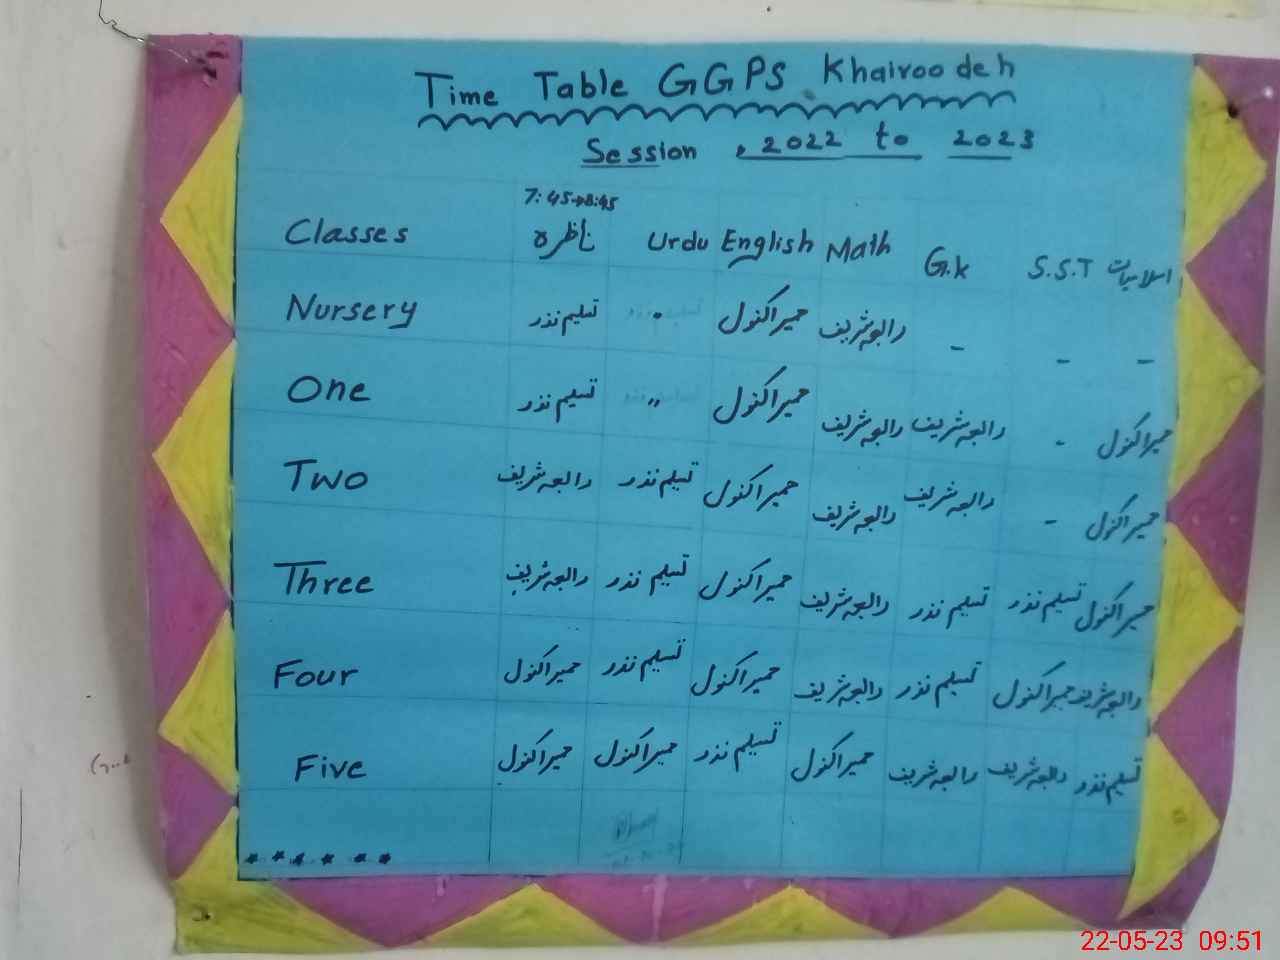 Time Table GGPS Khairoodeh
Session , 2022 to 2023
7:45→8:45
Classes ناظرہ Urdu English Math G.k S.S.T اسلامیات
Nursery تسلیم نذر " حمیرا کنول رابعہ شریف - - -
One تسلیم نذر " حمیرا کنول رابعہ شریف رابعہ شریف - حمیرا کنول
Two رابعہ شریف تسلیم نذر حمیرا کنول رابعہ شریف رابعہ شریف - حمیرا کنول
Three رابعہ شریف تسلیم نذر حمیرا کنول رابعہ شریف تسلیم نذر تسلیم نذر حمیرا کنول
Four حمیرا کنول تسلیم نذر حمیرا کنول رابعہ شریف تسلیم نذر حمیرا کنول رابعہ شریف
Five حمیرا کنول حمیرا کنول تسلیم نذر حمیرا کنول رابعہ شریف رابعہ شریف تسلیم نذر
22-05-23 09:51